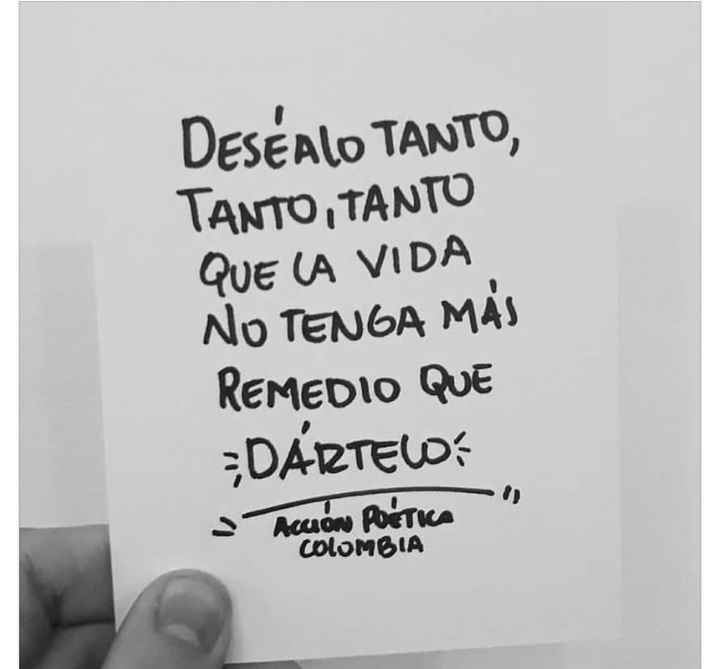 DESÉALO TANTO,
TANTO, TANTO
QUE LA VIDA
NO TENGA MÁS
REMEDIO QUE
DÁRTELO
ACCIÓN POÉTICA
COLOMBIA